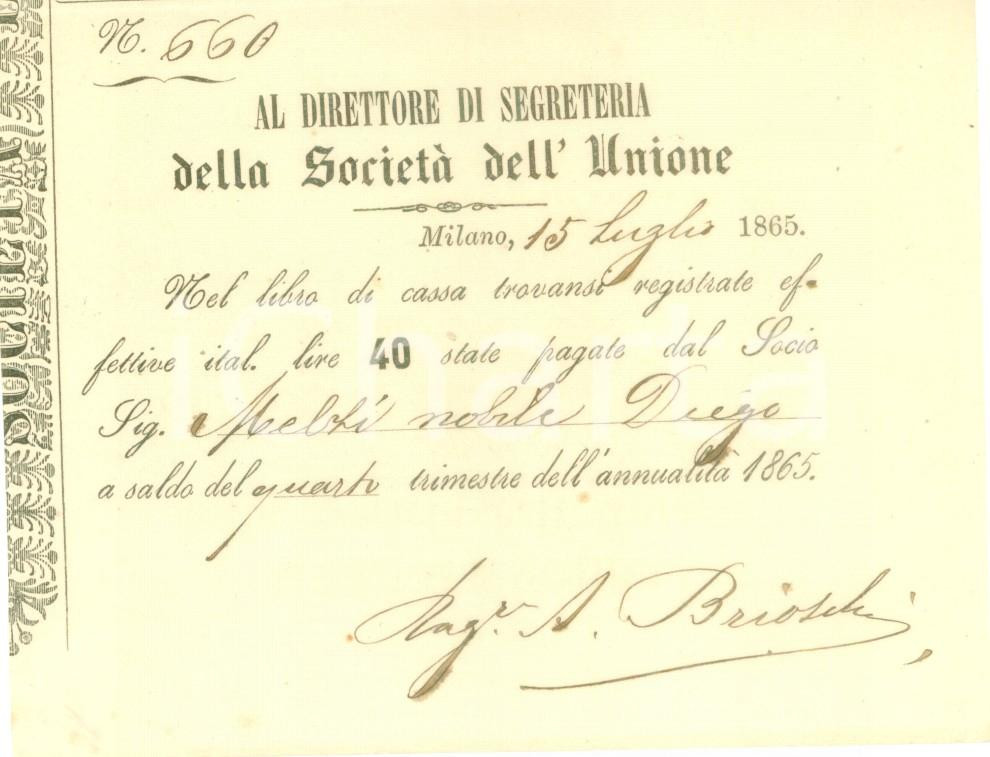 N. 660
AL DIRETTORE DI SEGRETERIA
della Società dell' Unione
Milano, 15 Luglio 1865.
Nel libro di cassa trovansi registrate ef-
fettive ital. lire 40 state pagate dal Socio
Sig. Melzi nobile Diego
a saldo del quarto trimestre dell'annualità 1865.
Rag.r A. Brioschi
SOCIETÀ